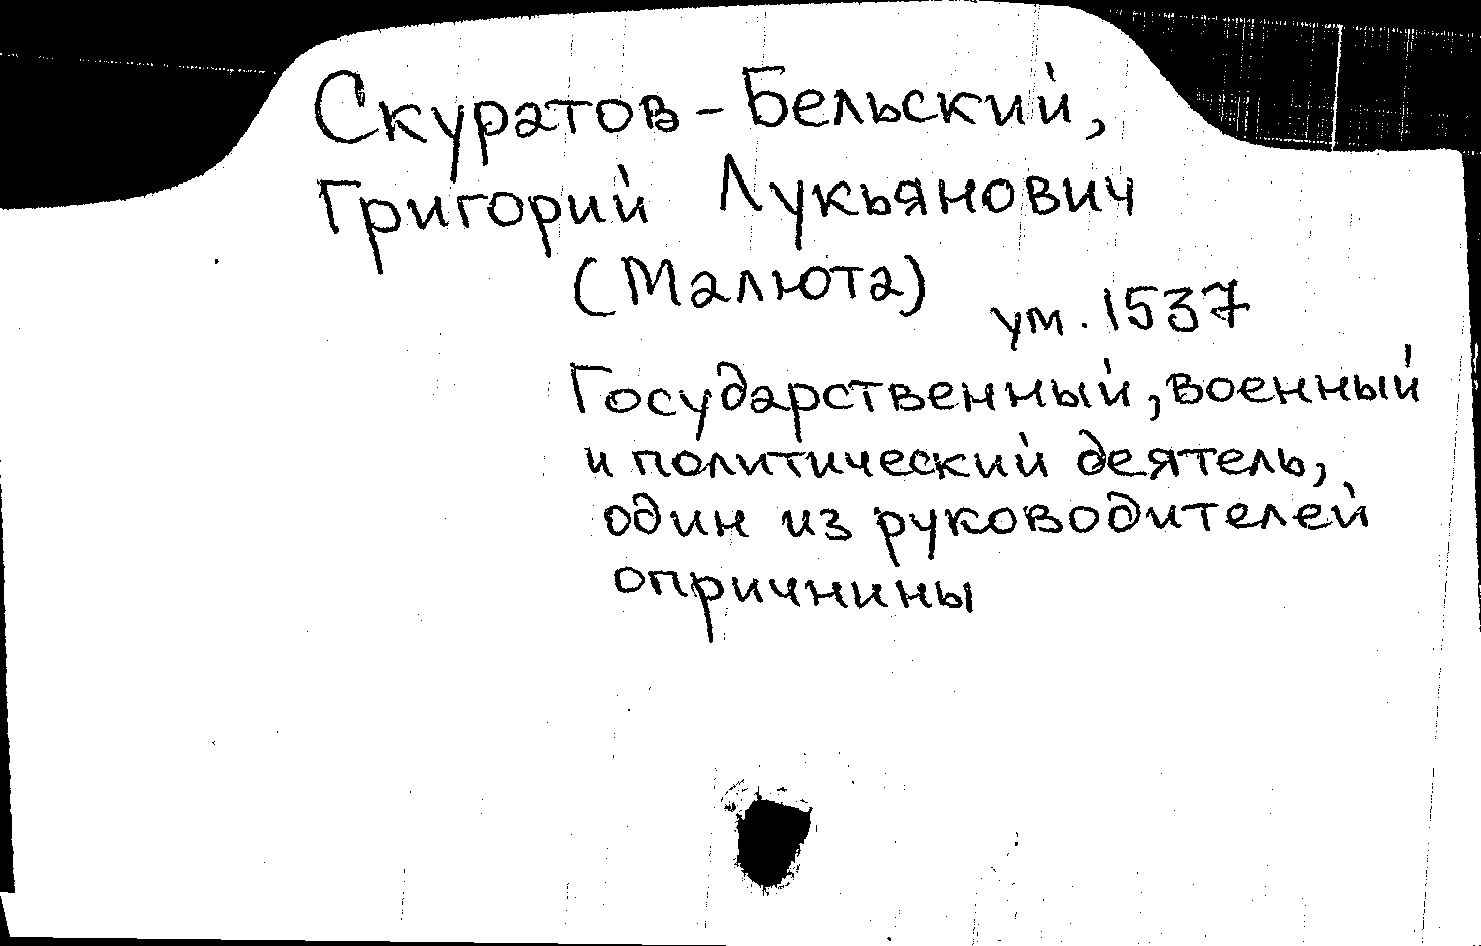 Скуратов-Бельский,
Григорий Лукьянович
(Малюта)
ум. 1537
Государственный, военный
и политический деятель,
один из руководителей
опричнины